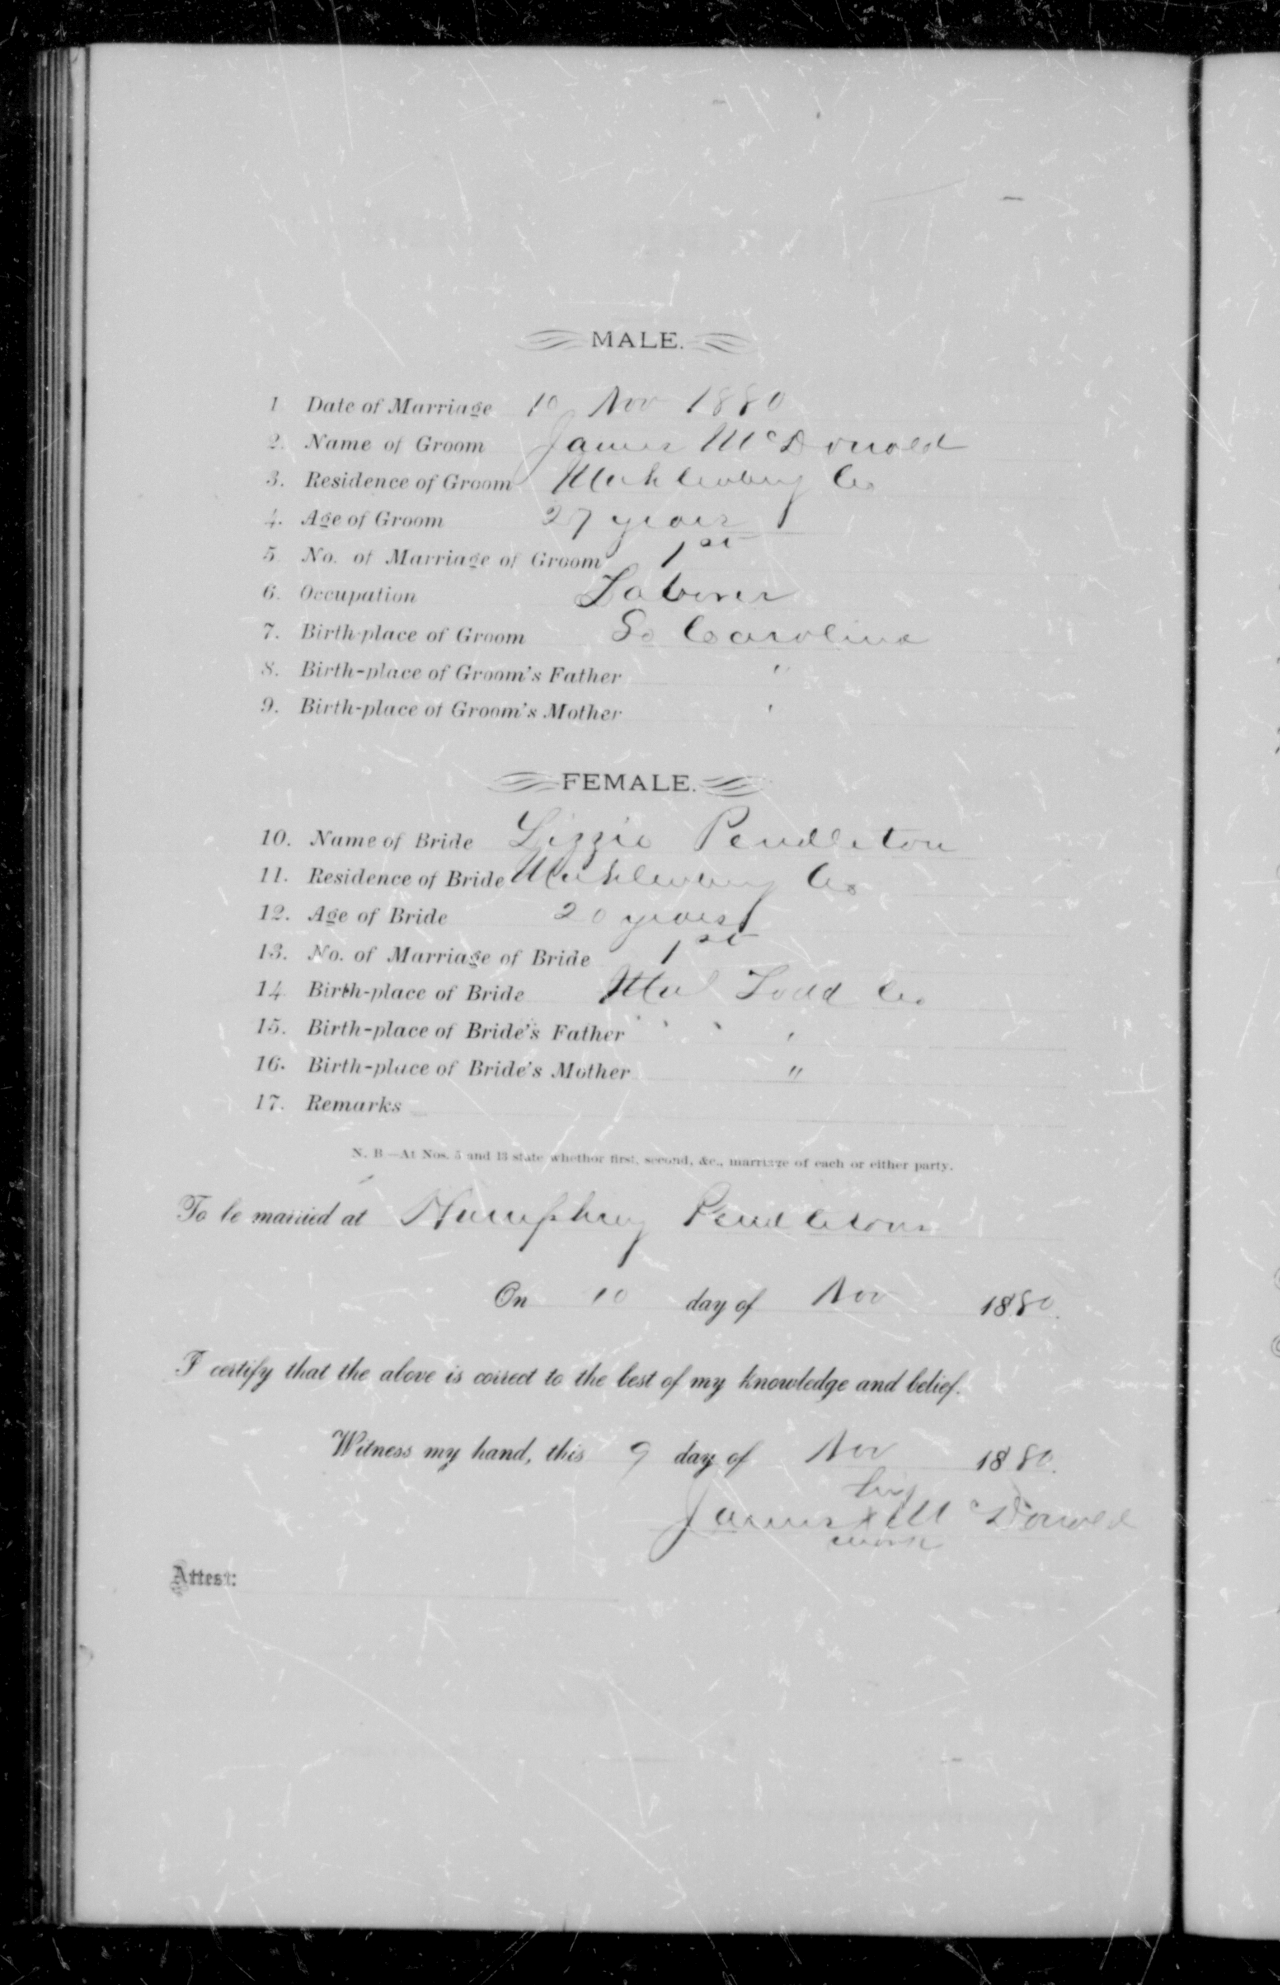 MALE.
1 Date of Marriage 10 Nov 1880
2. Name of Groom James McDonald
3. Residence of Groom Muhlenberg Co
4. Age of Groom 27 years
5 No. of Marriage of Groom 1st
6. Occupation Laborer
7. Birth-place of Groom So Carolina
8. Birth-place of Groom's Father "
9. Birth-place of Groom's Mother "
FEMALE.
10. Name of Bride Lizzie Pendleton
11. Residence of Bride Muhlenberg Co
12. Age of Bride 20 years
13. No. of Marriage of Bride 1st
14 Birth-place of Bride Todd Co
15. Birth-place of Bride's Father "
16. Birth-place of Bride's Mother "
17. Remarks
N. B—At Nos. 5 and 13 state whether first, second, &c., marriage of each or either party.
To be married at Humphrey Pendletons
On 10 day of Nov 1880.
I certify that the above is correct to the best of my knowledge and belief.
Witness my hand, this 9 day of Nov 1880.
his
James x McDonald
mark
Attest: